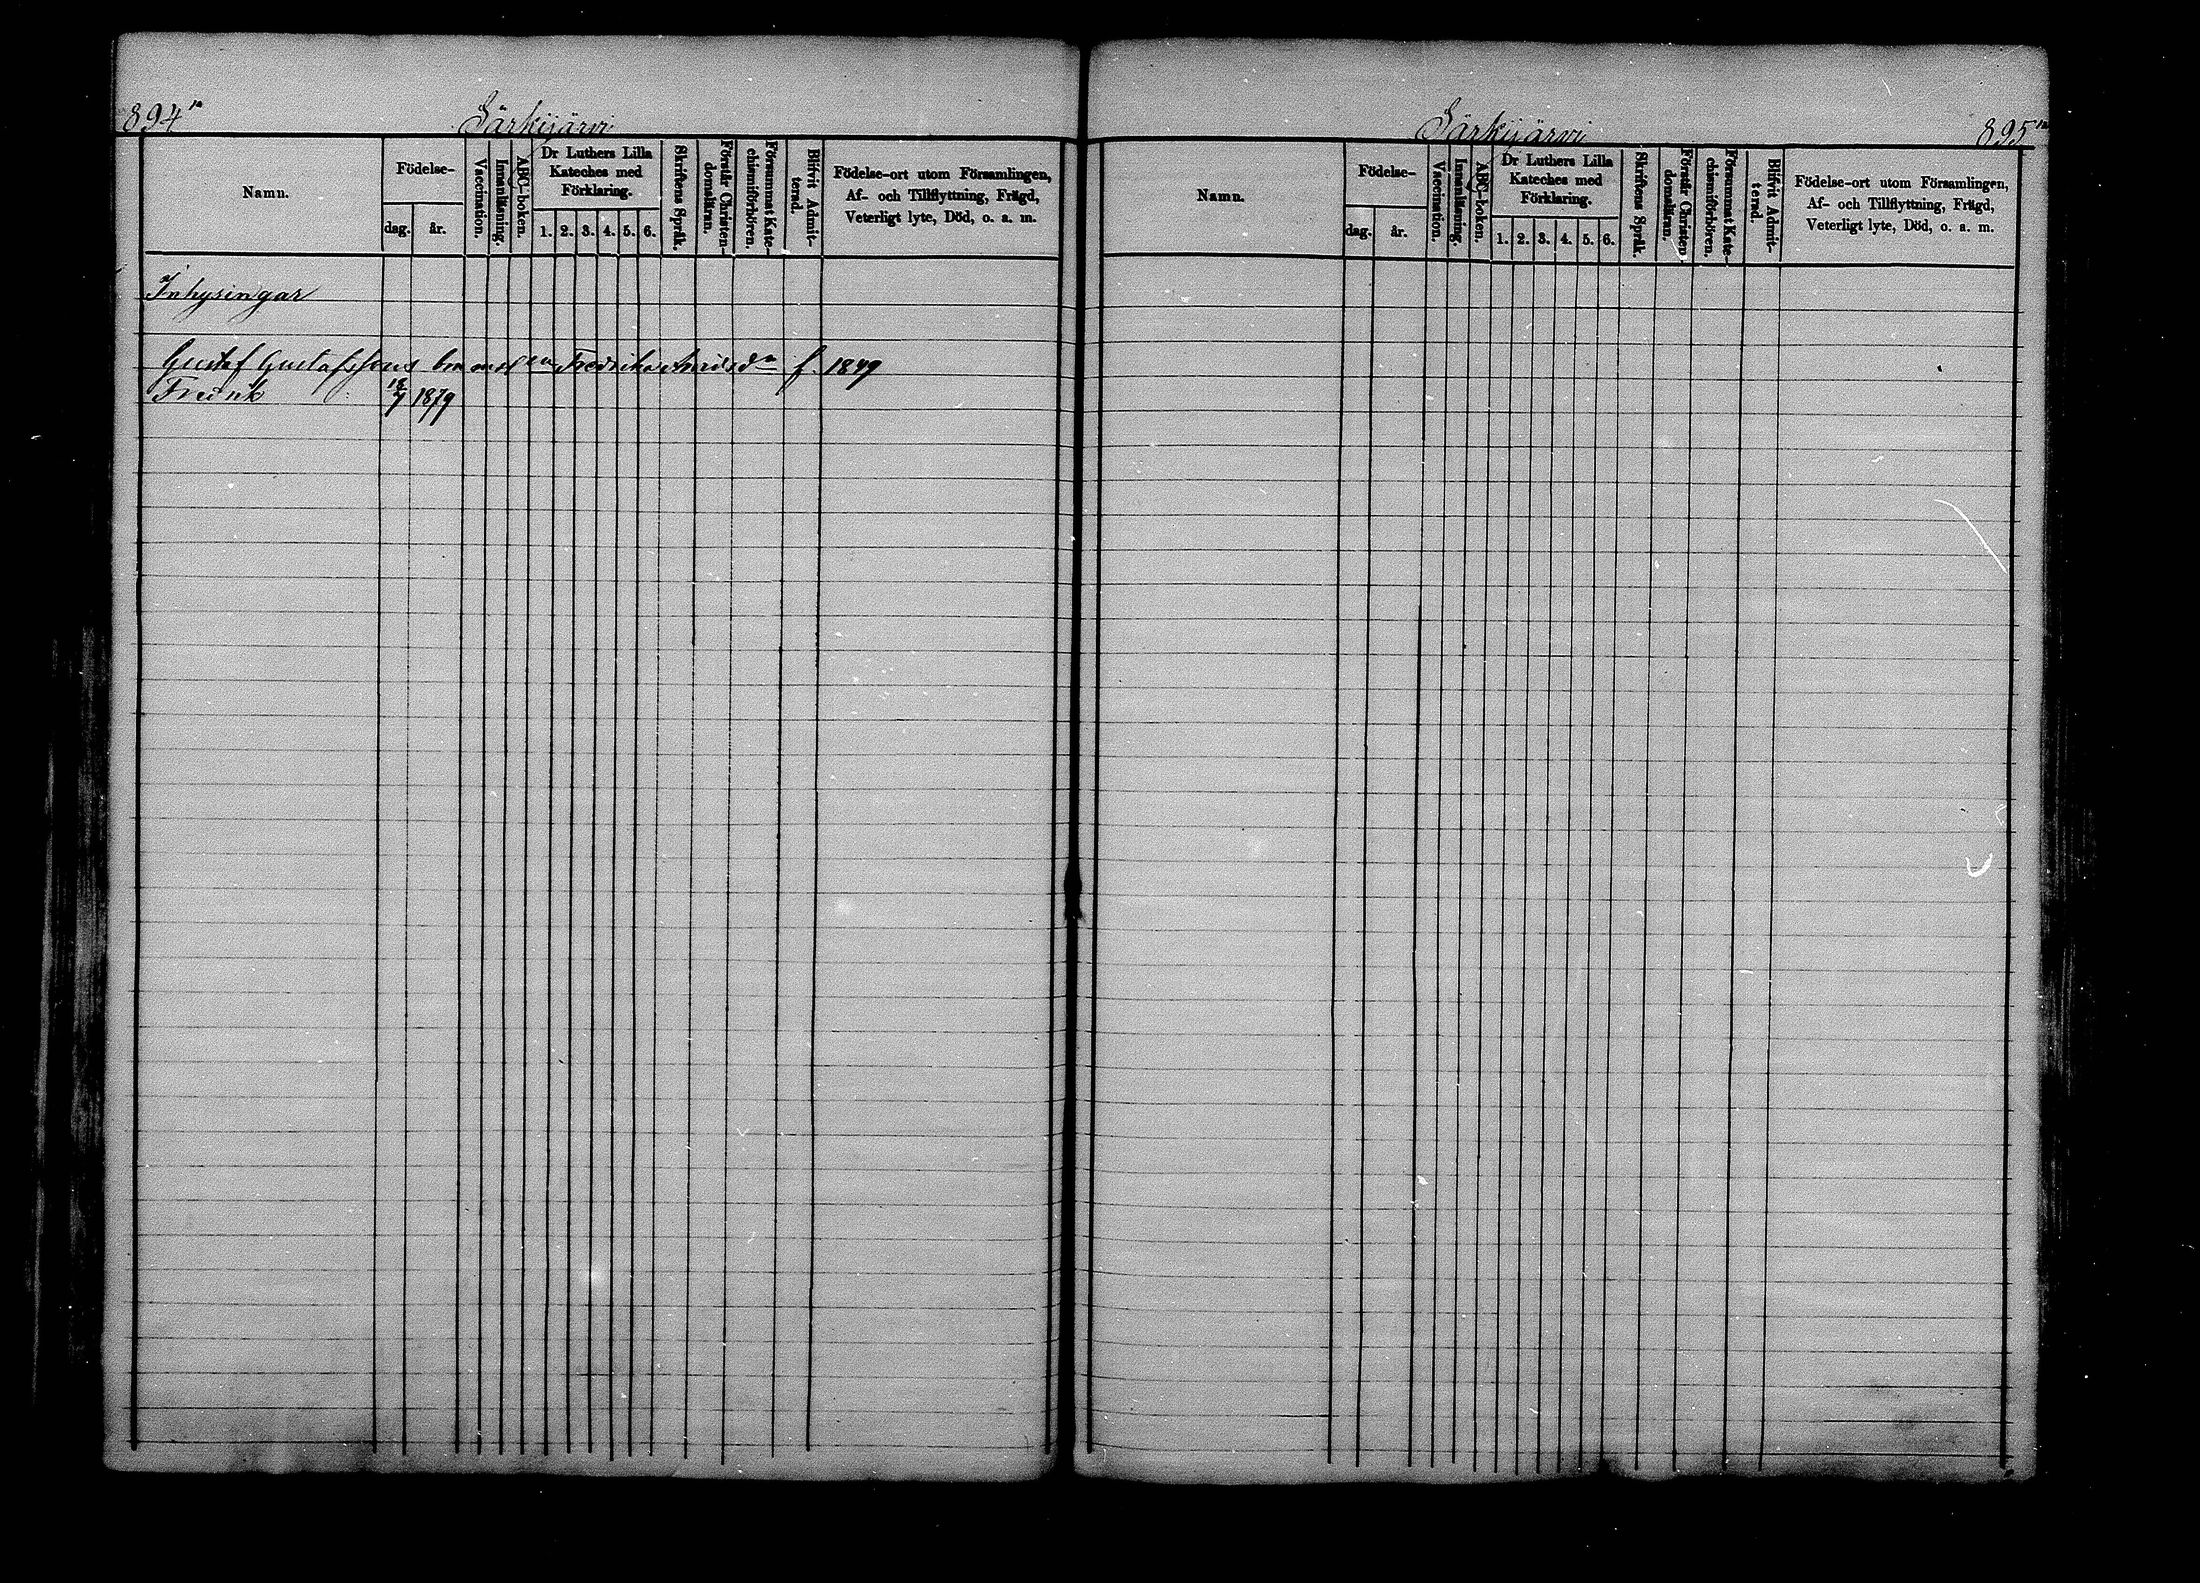 894
Särkijärvi
Namn.
Födelse-
dag.
år.
Vaccination.
Innanläsning.
ABC-boken.
Dr Luthers Lilla
Kateches med
Förklaring.
1. 2. 3. 4. 5. 6.
Skriftens Språk.
Förstår Christen-
domsläran.
Försummat Kate-
chismiförhören.
Blifvit Admit-
terad.
Födelse-ort utom Församlingen,
Af- och Tillflyttning, Frägd,
Veterligt lyte, Död, o. a. m.
Inhysingar
Gustaf Gustafssons med Fredrika f. 1849
Fredrik 18/7 1879
Särkijärvi
895
Namn.
Födelse-
dag.
år.
Vaccination.
Innanläsning.
ABC-boken.
Dr Luthers Lilla
Kateches med
Förklaring.
1. 2. 3. 4. 5. 6.
Skriftens Språk.
Förstår Christen-
domsläran.
Försummat Kate-
chismiförhören.
Blifvit Admit-
terad.
Födelse-ort utom Församlingen,
Af- och Tillflyttning, Frägd,
Veterligt lyte, Död, o. a. m.